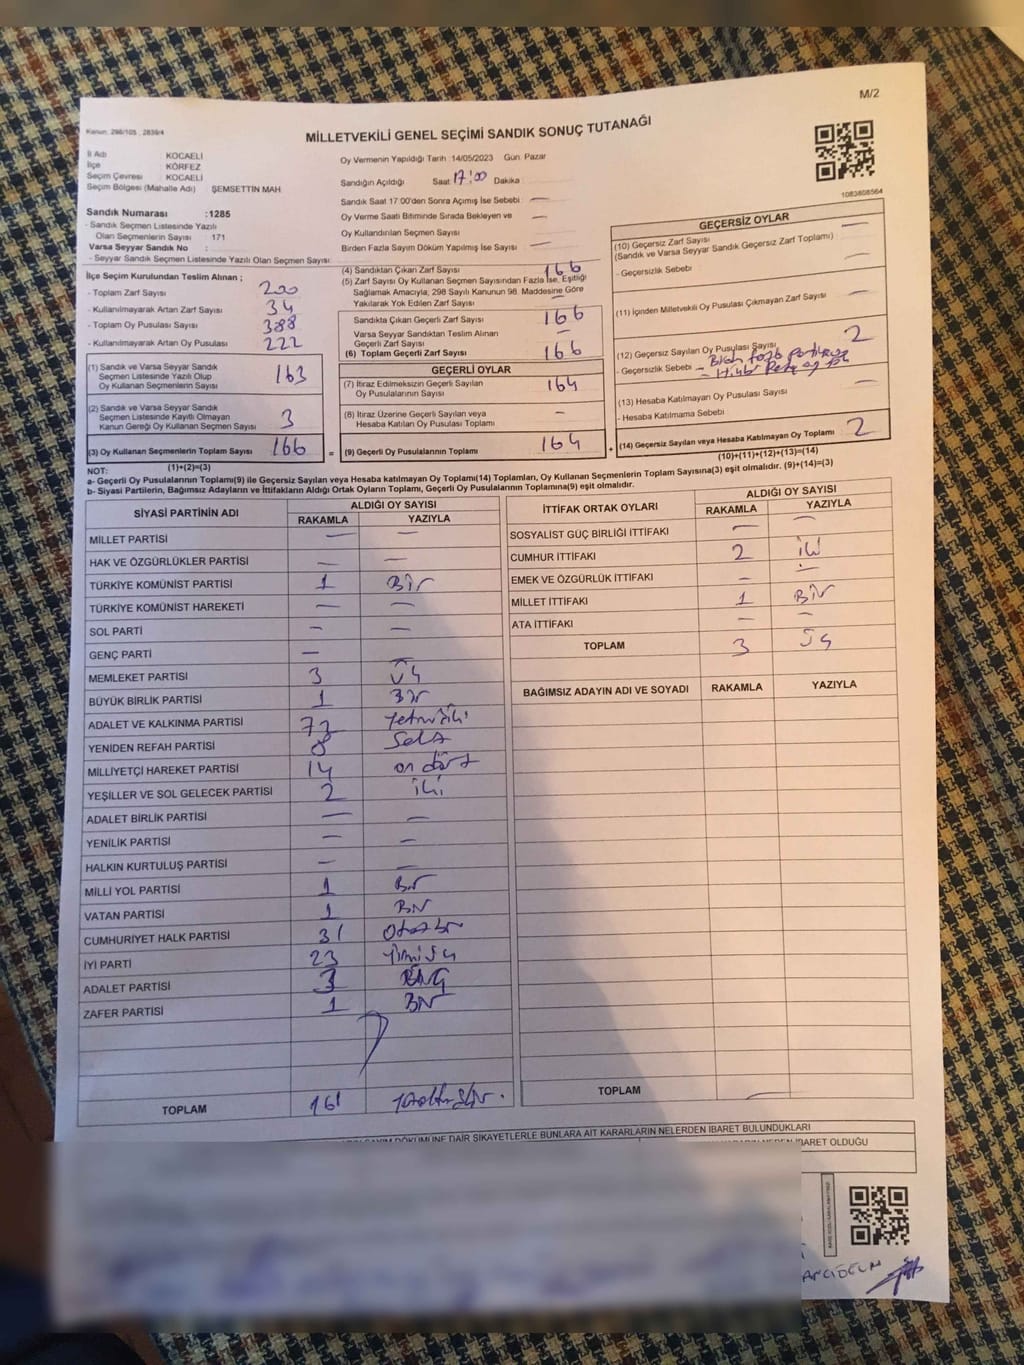 M/2
Kanun: 298/105 , 2839/4
MİLLETVEKİLİ GENEL SEÇİMİ SANDIK SONUÇ TUTANAĞI
İl Adı : KOCAELİ
İlçe : KÖRFEZ
Seçim Çevresi : KOCAELİ
Seçim Bölgesi (Mahalle Adı) ŞEMSETTİN MAH
Sandık Numarası :1285
- Sandık Seçmen Listesinde Yazılı
Olan Seçmenlerin Sayısı : 171
Varsa Seyyar Sandık No :
- Seyyar Sandık Seçmen Listesinde Yazılı Olan Seçmen Sayısı:
Oy Vermenin Yapıldığı Tarih :14/05/2023 Gün: Pazar
Sandığın Açıldığı Saat 17:00 Dakika
Sandık Saat 17:00'den Sonra Açımış İse Sebebi —
Oy Verme Saati Bitiminde Sırada Bekleyen ve
Oy Kullandırılan Seçmen Sayısı —
Birden Fazla Sayım Döküm Yapılmış İse Sayısı —
1083808564
İlçe Seçim Kurulundan Teslim Alınan ;
- Toplam Zarf Sayısı 200
- Kullanılmayarak Artan Zarf Sayısı 34
- Toplam Oy Pusulası Sayısı 388
- Kullanılmayarak Artan Oy Pusulası 222
(1) Sandık ve Varsa Seyyar Sandık
Seçmen Listesinde Yazılı Olup
Oy Kullanan Seçmenlerin Sayısı 163
(2) Sandık ve Varsa Seyyar Sandık
Seçmen Listesinde Kayıtlı Olmayan
Kanun Gereği Oy Kullanan Seçmen Sayısı 3
(3) Oy Kullanan Seçmenlerin Toplam Sayısı 166
(1)+(2)=(3)
(4) Sandıktan Çıkan Zarf Sayısı 166
(5) Zarf Sayısı Oy Kullanan Seçmen Sayısından Fazla İse, Eşitliği
Sağlamak Amacıyla, 298 Sayılı Kanunun 98. Maddesine Göre
Yakılarak Yok Edilen Zarf Sayısı —
Sandıkta Çıkan Geçerli Zarf Sayısı 166
Varsa Seyyar Sandıktan Teslim Alınan
Geçerli Zarf Sayısı —
(6) Toplam Geçerli Zarf Sayısı 166
GEÇERLİ OYLAR
(7) İtiraz Edilmeksizin Geçerli Sayılan
Oy Pusulalarının Sayısı 164
(8) İtiraz Üzerine Geçerli Sayılan veya
Hesaba Katılan Oy Pusulası Toplamı —
= (9) Geçerli Oy Pusulalarının Toplamı 164 +
GEÇERSİZ OYLAR
(10) Geçersiz Zarf Sayısı
(Sandık ve Varsa Seyyar Sandık Geçersiz Zarf Toplamı) —
- Geçersizlik Sebebi : —
(11) İçinden Milletvekili Oy Pusulası Çıkmayan Zarf Sayısı —
(12) Geçersiz Sayılan Oy Pusulası Sayısı 2
- Geçersizlik Sebebi
(13) Hesaba Katılmayan Oy Pusulası Sayısı —
- Hesaba Katılmama Sebebi
(14) Geçersiz Sayılan veya Hesaba Katılmayan Oy Toplamı 2
(10)+(11)+(12)+(13)=(14)
NOT:
a- Geçerli Oy Pusulalarının Toplamı(9) ile Geçersiz Sayılan veya Hesaba katılmayan Oy Toplamı(14) Toplamları, Oy Kullanan Seçmenlerin Toplam Sayısına(3) eşit olmalıdır. (9)+(14)=(3)
b- Siyasi Partilerin, Bağımsız Adayların ve İttifakların Aldığı Ortak Oyların Toplamı, Geçerli Oy Pusulalarının Toplamına(9) eşit olmalıdır.
SİYASİ PARTİNİN ADI ALDIĞI OY SAYISI
RAKAMLA YAZIYLA
MİLLET PARTİSİ — —
HAK VE ÖZGÜRLÜKLER PARTİSİ — —
TÜRKİYE KOMÜNİST PARTİSİ 1 Bir
TÜRKİYE KOMÜNİST HAREKETİ — —
SOL PARTİ — —
GENÇ PARTİ —
MEMLEKET PARTİSİ 3 Üç
BÜYÜK BİRLİK PARTİSİ 1 Bir
ADALET VE KALKINMA PARTİSİ 72 Yetmişiki
YENİDEN REFAH PARTİSİ 8 Sekiz
MİLLİYETÇİ HAREKET PARTİSİ 14 on dört
YEŞİLLER VE SOL GELECEK PARTİSİ 2 iki
ADALET BİRLİK PARTİSİ — —
YENİLİK PARTİSİ — —
HALKIN KURTULUŞ PARTİSİ — —
MİLLİ YOL PARTİSİ 1 Bir
VATAN PARTİSİ 1 Bir
CUMHURİYET HALK PARTİSİ 31 Otuzbir
İYİ PARTİ 23 Yirmiüç
ADALET PARTİSİ 3 ÜÇ
ZAFER PARTİSİ 1 Bir
TOPLAM 161 yüzaltmışbir.
İTTİFAK ORTAK OYLARI ALDIĞI OY SAYISI
RAKAMLA YAZIYLA
SOSYALİST GÜÇ BİRLİĞİ İTTİFAKI — —
CUMHUR İTTİFAKI 2 iki
EMEK VE ÖZGÜRLÜK İTTİFAKI — —
MİLLET İTTİFAKI 1 Bir
ATA İTTİFAKI — —
TOPLAM 3 üç
BAĞIMSIZ ADAYIN ADI VE SOYADI RAKAMLA YAZIYLA
TOPLAM —
SAYIM DÖKÜMÜNE DAİR ŞİKAYETLERLE BUNLARA AİT KARARLARIN NELERDEN İBARET BULUNDUKLARI
İBARET OLDUĞU